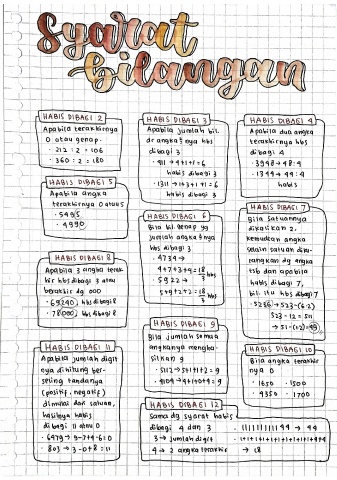 Syarat
bilangan
HABIS DIBAGI 2
Apabila terakhirnya
0 atau genap.
· 212 : 2 = 106
· 360 : 2 = 180
HABIS DIBAGI 3
Apabila jumlah bil.
dr angka²nya hbs
dibagi 3
· 411 → 4+1+1 = 6
habis dibagi 3
· 1311 → 1+3+1+1 = 6
habis dibagi 3
HABIS DIBAGI 4
Apabila dua angka
terakhirnya hbs
dibagi 4
· 3948 → 48:4
· 1344 → 44:4
habis
HABIS DIBAGI 5
Apabila angka
terakhirnya 0 atau 5
· 5495
· 4990
HABIS DIBAGI 6
Bila bil genap yg
jumlah angka²nya
hbs dibagi 3
· 4734 →
4+7+3+4 = 18 hbs
3
· 5922 →
5+9+2+2 = 18 hbs
3
HABIS DIBAGI 7
Bila satuannya
dikalikan 2.
kemudian angka
selain satuan diku-
rangkan dg angka
tsb dan apabila
habis dibagi 7,
bil. itu hbs dibagi 7
· 5236 → 523-(6·2)
523-12 = 511
→ 51-(1·2) = 49
HABIS DIBAGI 8
Apabila 3 angka terak-
hir hbs dibagi 8 atau
berakhir dg 000
· 69240, hbs dibagi 8
· 78000, hbs dibagi 8
HABIS DIBAGI 9
Bila jumlah semua
angkanya mengha-
silkan 9
· 5112 → 5+1+1+2 = 9
HABIS DIBAGI 10
Bila angka terakhir
nya 0
· 1650 · 1500
· 9350 · 1700
HABIS DIBAGI 11
Apabila jumlah digit
nya dihitung ber-
seling tandanya
(positif, negatif)
dimulai dari satuan,
hasilnya habis
dibagi 11 atau 0
· 6479 → 9-7+4-6 = 0
· 803 → 3-0+8 = 11
HABIS DIBAGI 12
Sama dg syarat habis
dibagi 4 dan 3
3 → jumlah digit
4 → 2 angka terakhir
→ 18